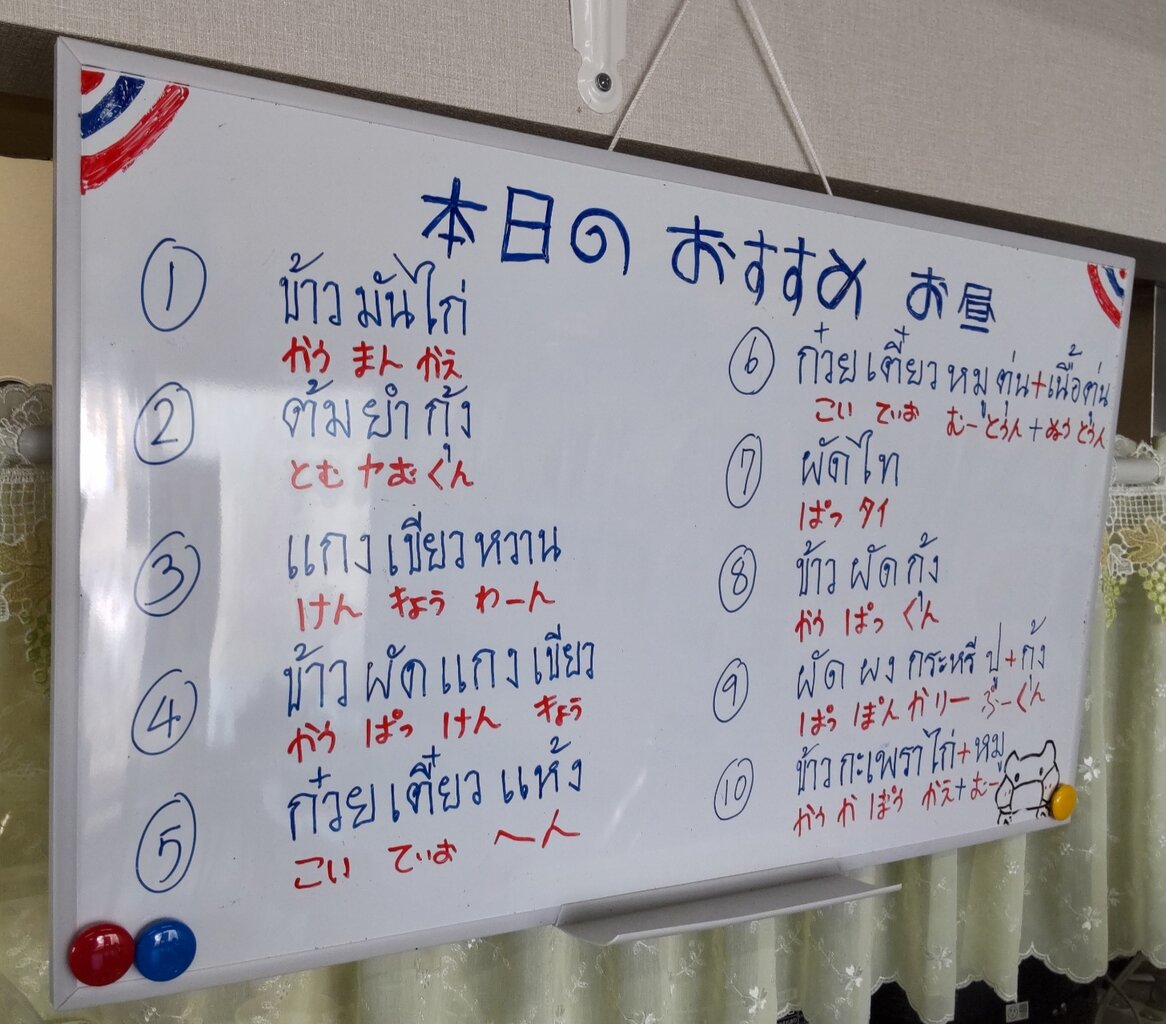 本日の おすすめ お昼
① ข้าวมันไก่
かう まん かえ
② ต้มยำกุ้ง
とむ ヤむ くん
③ แกงเขียวหวาน
けん きょう わーん
④ ข้าวผัดแกงเขียว
かう ぱっ けん きょう
⑤ ก๋วยเตี๋ยวแห้ง
こい てぃお へん
⑥ ก๋วยเตี๋ยวหมูตุ่น+เนื้อตุ่น
こい てぃお むーとぅん+ぬうとぅん
⑦ ผัดไท
ぱっ タイ
⑧ ข้าวผัดกุ้ง
かう ぱっ くん
⑨ ผัดผงกระหรี่ปู+กุ้ง
ぱう ぽん かりー ぷーくん
⑩ ข้าวกะเพราไก่+หมู
かう か ぱう かえ+むー